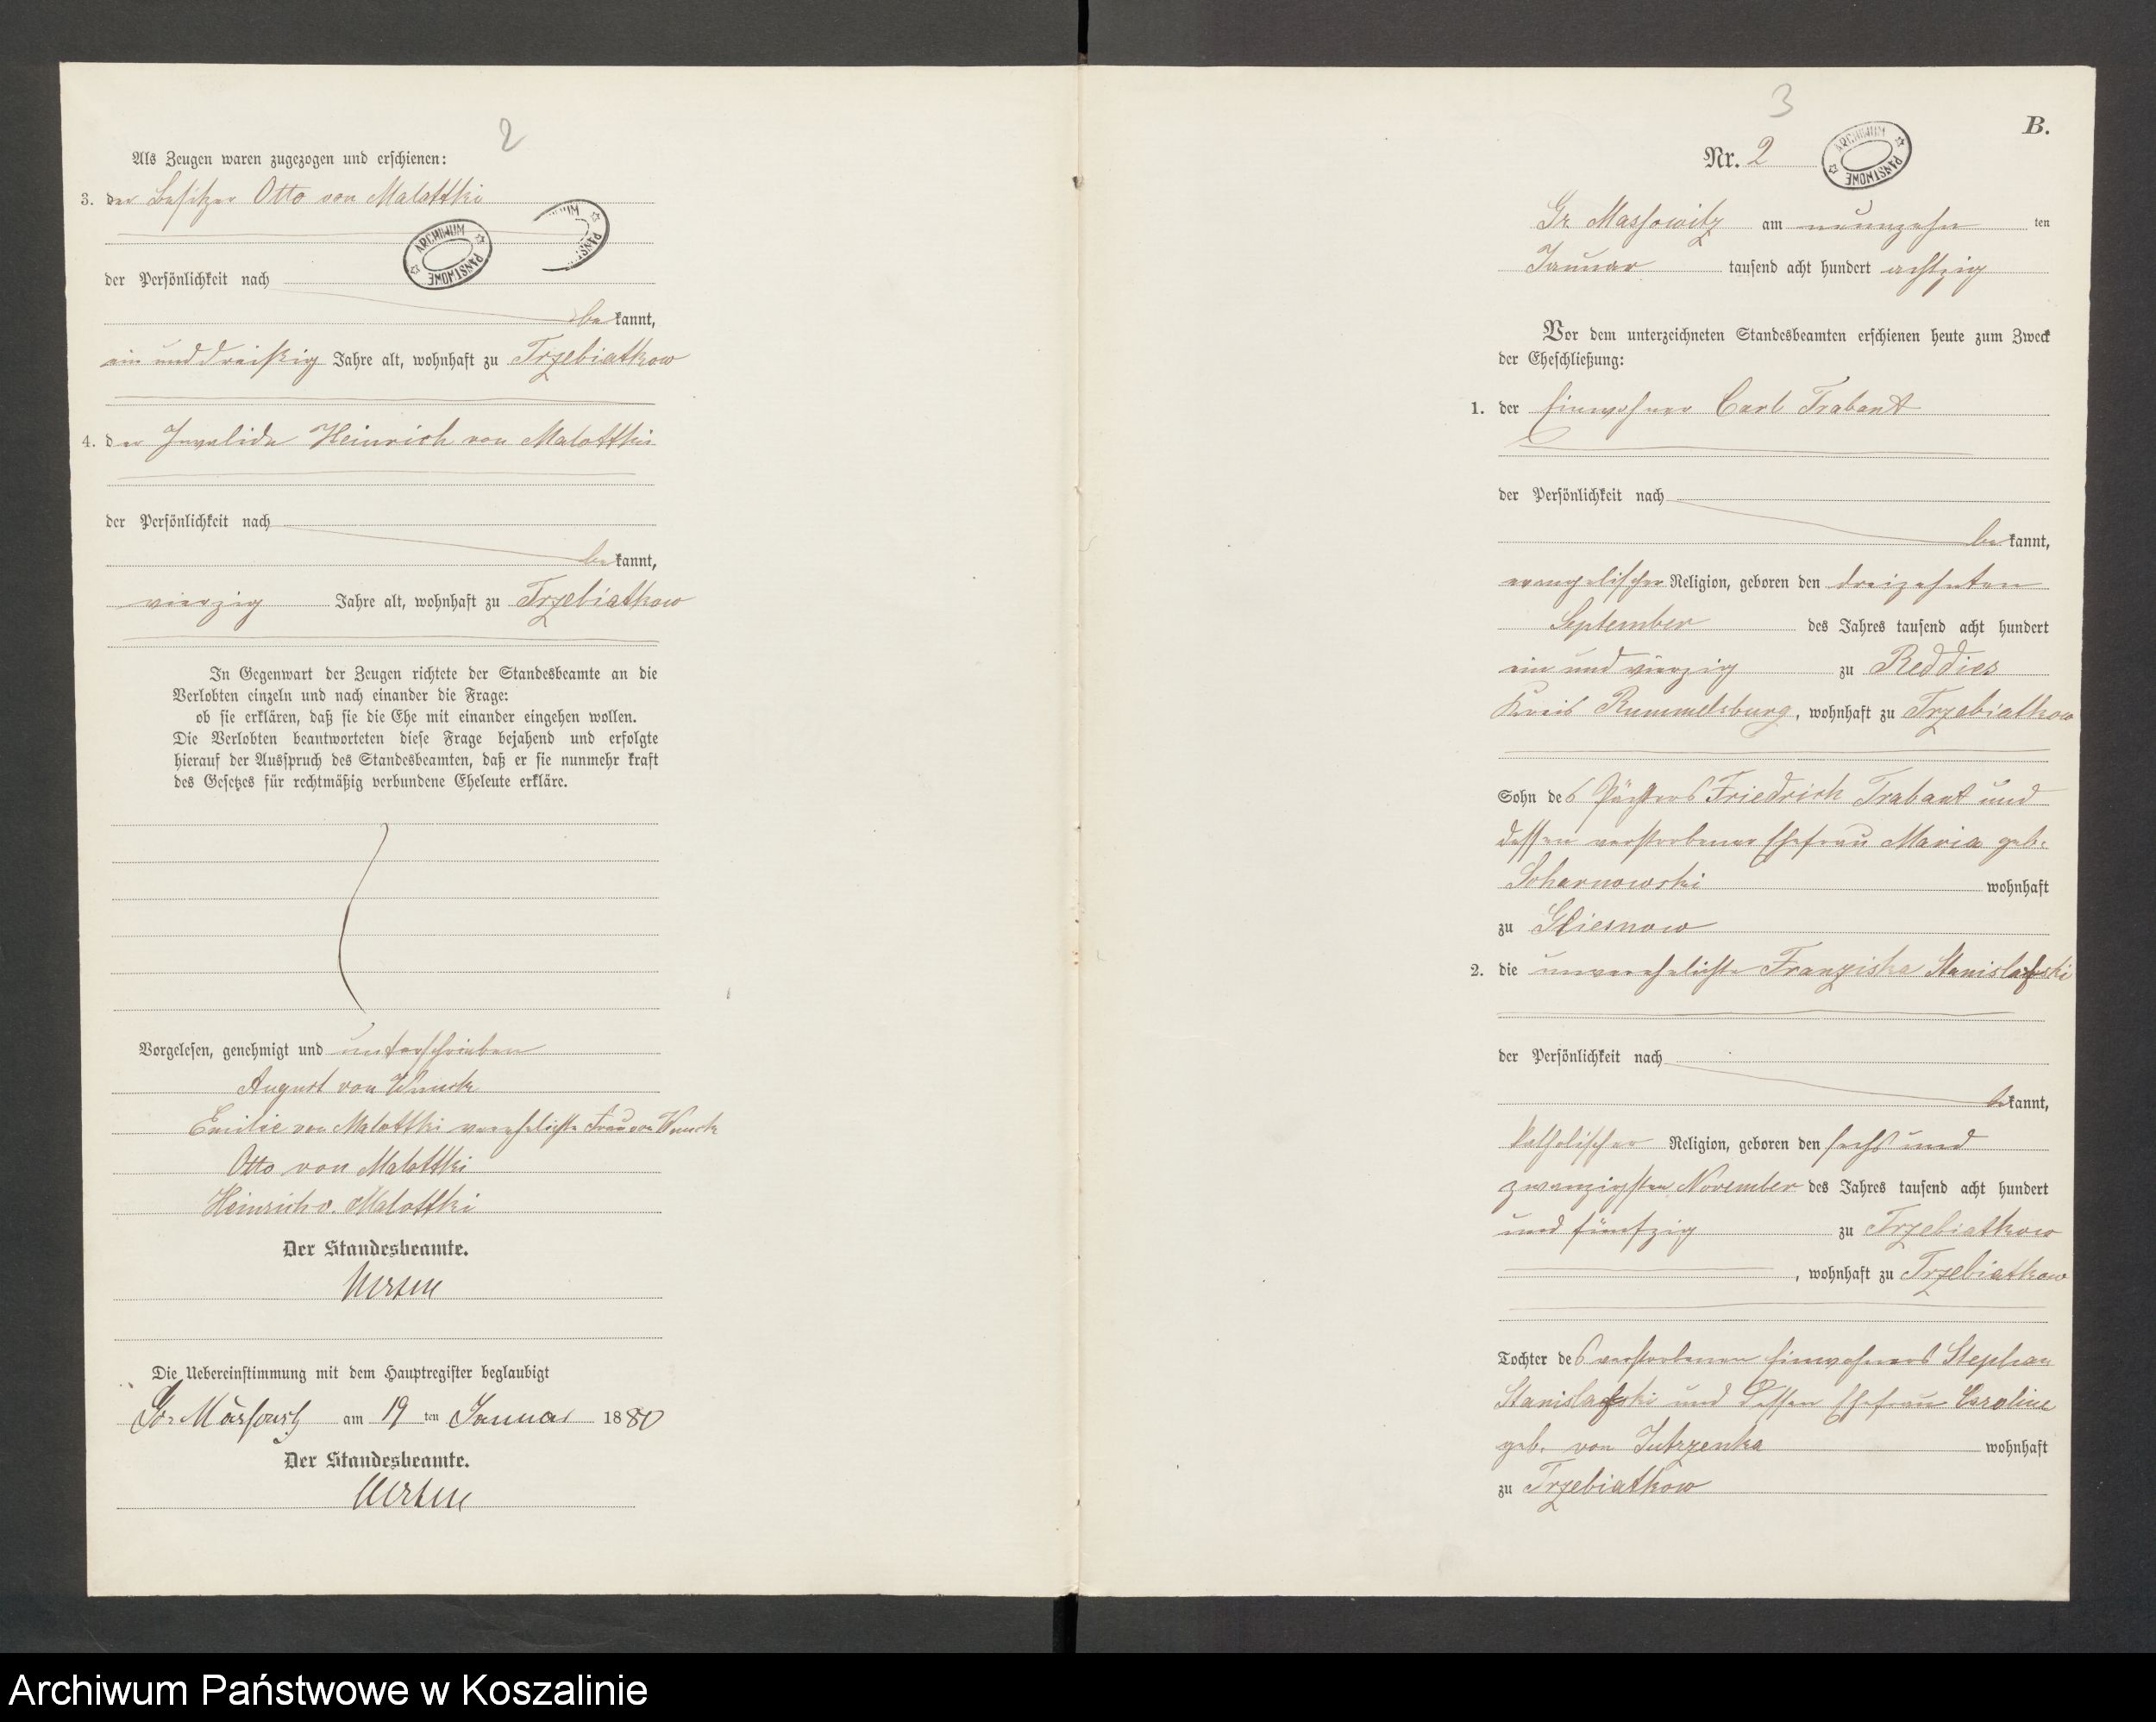 2
Als Zeugen waren zugezogen und erschienen:
3. der Besitzer Otto von Malottki
ARCHIWUM PAŃSTWOWE
der Persönlichkeit nach
bekannt,
ein und dreißig Jahre alt, wohnhaft zu Trzebiatkow
4. der Invalide Heinrich von Malottki
der Persönlichkeit nach
bekannt,
vierzig Jahre alt, wohnhaft zu Trzebiatkow
In Gegenwart der Zeugen richtete der Standesbeamte an die
Verlobten einzeln und nach einander die Frage:
ob sie erklären, daß sie die Ehe mit einander eingehen wollen.
Die Verlobten beantworteten diese Frage bejahend und erfolgte
hierauf der Ausspruch des Standesbeamten, daß er sie nunmehr kraft
des Gesetzes für rechtmäßig verbundene Eheleute erkläre.
Vorgelesen, genehmigt und unterschrieben
August von Wnuck
Emilie von Malottki verehelichte Frau von Wnuck
Otto von Malottki
Heinrich v. Malottki
Der Standesbeamte.
Die Uebereinstimmung mit dem Hauptregister beglaubigt
Gr. Massowitz am 19 ten Januar 1880
Der Standesbeamte.
3
B.
Nr. 2
ARCHIWUM PAŃSTWOWE
Gr. Massowitz am neunzehn ten
Januar tausend acht hundert achtzig
Vor dem unterzeichneten Standesbeamten erschienen heute zum Zweck
der Eheschließung:
1. der Einwohner Carl Trabant
der Persönlichkeit nach
bekannt,
evangelischer Religion, geboren den dreizehnten
September des Jahres tausend acht hundert
ein und vierzig zu Reddies
Kreis Rummelsburg, wohnhaft zu Trzebiatkow
Sohn des Pächters Friedrich Trabant und
dessen verstorbener Ehefrau Maria geb.
Scharnowski wohnhaft
zu Gliesnow
2. die unverehelichte Franziska Stanislafski
der Persönlichkeit nach
bekannt,
katholischer Religion, geboren den sechs und
zwanzigsten November des Jahres tausend acht hundert
und fünfzig zu Trzebiatkow
, wohnhaft zu Trzebiatkow
Tochter des verstorbenen Einwohners Stephan
Stanislafski und dessen Ehefrau Caroline
geb. von Jutrzenka wohnhaft
zu Trzebiatkow
Archiwum Państwowe w Koszalinie